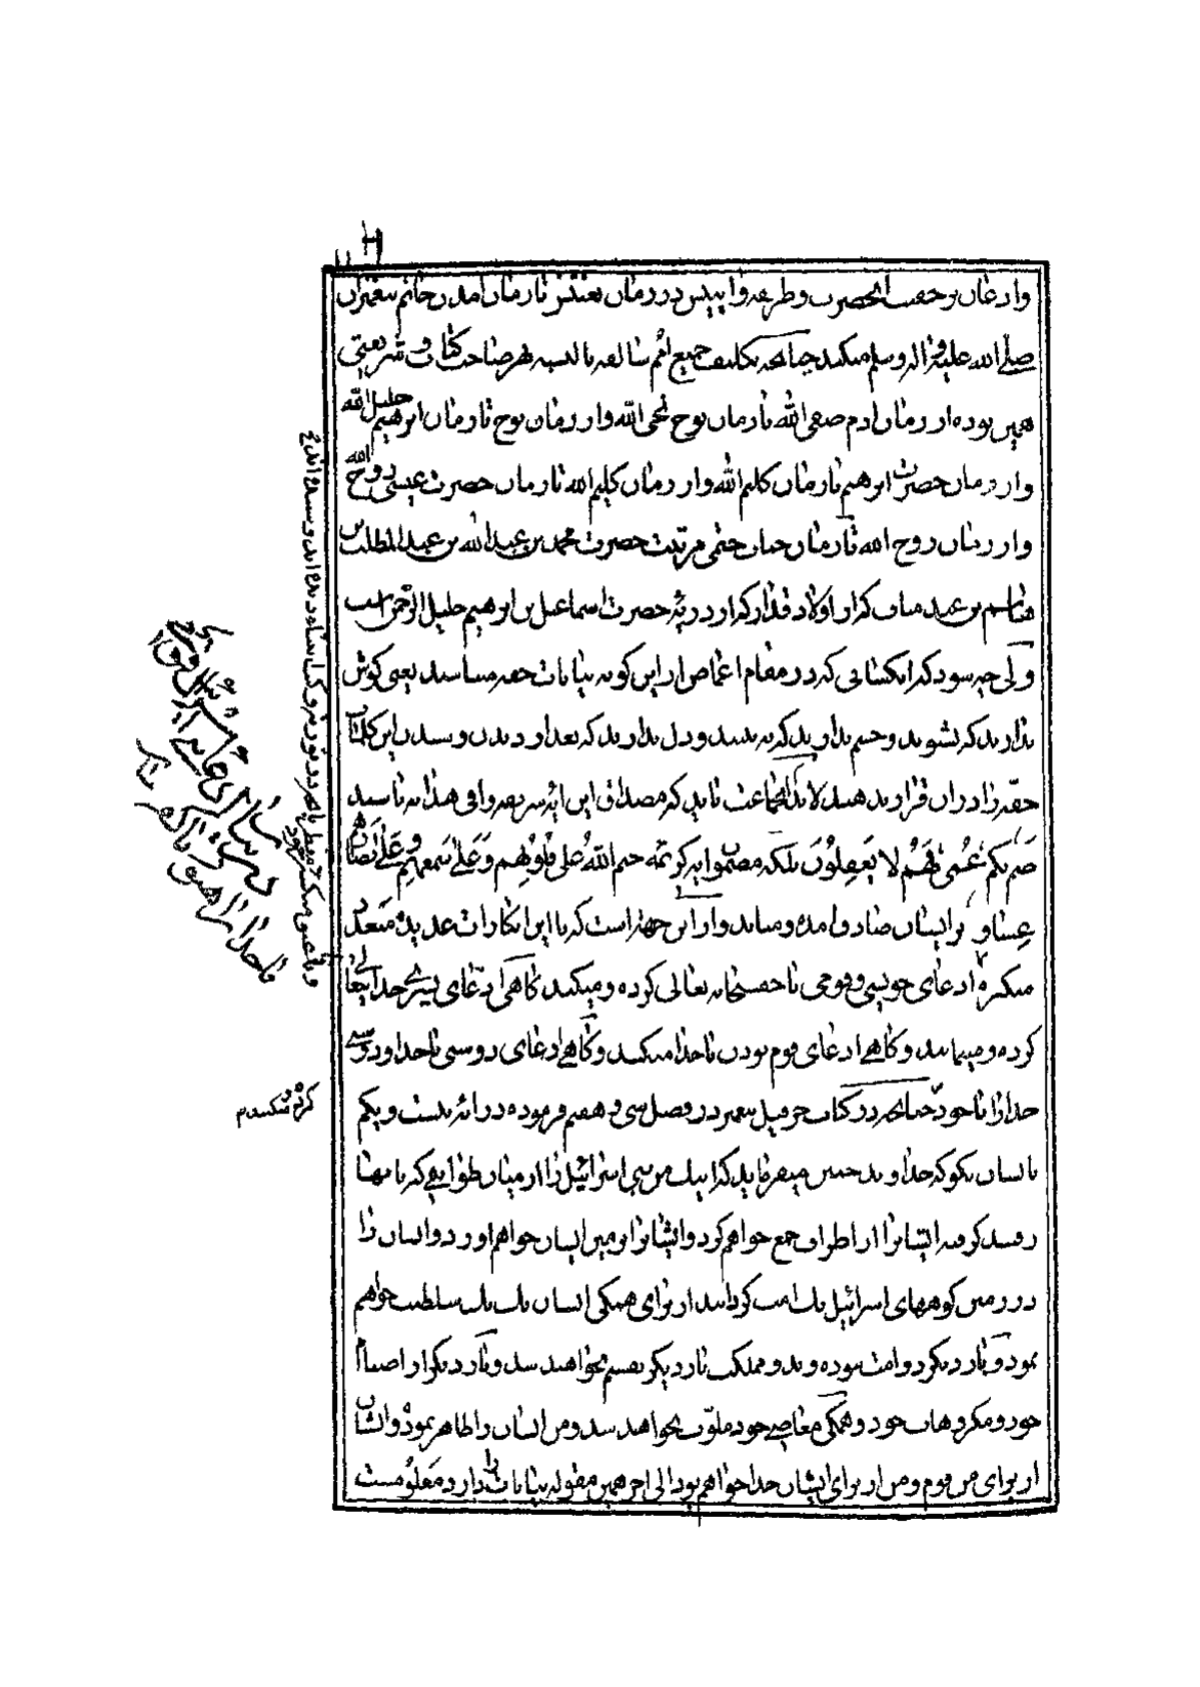 واذعان بر حقیت آنحضرت و طریقه وا پیش در زمان بعثتش تا زمان آمدن خاتم پیغمبران
صلی الله علیه و آله و سلم میکند چنانکه تکلیف جمیع امم سالفه بالنسبه بهر صاحب کتاب و شریعتی
همین بوده از زمان آدم صفی الله تا زمان نوح نجی الله و از زمان نوح تا زمان ابرهیم خلیل الله
و از زمان حضرت ابرهیم تا زمان کلیم الله و از زمان کلیم الله تا زمان حضرت عیسی روح الله
و از زمان روح الله تا زمان جناب ختمی مرتبت حضرت محمد بن عبد الله بن عبد المطلب بن
هاشم بن عبد مناف که از اولاد قیدار که از ذریّه حضرت اسماعیل بن ابرهیم خلیل الرحمن است
ولی چه سود که کسانی که در مقام اغماض از این گونه بیانات حقه میباشند یعنی گوش
ندارند که نشوند و چشم ندارند که نه بینند و دل ندارند که بعد از دیدن و شنیدن این کلمات
حقه را در آن قرار دهند لابد آنجماعت باید که مصداق این آیه شریفه وافی هدایه باشند
صُمٌّ بُکمٌ عُمیٌ فَهُم لا یَعقِلُونَ بلکه مضمون آیه کریمه ختم اللهُ علی قلوبِهِم وَعَلی سَمعِهِم وَعَلی اَبصارِهِم
غِشاوة بر ایشان صادق آمده و میاید و از این جهة است که با این انکارات عدیده متعدده
منکره ادعای خویشی و قومی با حقسبحانه تعالی کرده و میکنند گاهی ادعای پسری خدایتعالی
کرده و مینمایند و گاهی ادعای قوم بودن با خدا میکنند و گاهی ادعای دوستی با خدا و دوستی
خدا را با خود چنانچه در کتاب حزقیل پیغمبر در فصل سی و هفتم فرموده در آیه بیست و یکم
بایشان بگو که خداوند چنین میفرماید که اینک من بنی اسرائیل را از میان طوایفی که بآنها
رفتند گرفته ایشانرا از اطراف جمع خواهم کرد و ایشانرا بزمین ایشان خواهم آورد و ایشان را
در زمین کوههای اسرائیل یک امت گردانیده از برای همگی ایشان یک سلطنت خواهم
نمود و بار دیگر دو امت نبوده و بدو مملکت بار دیگر تقسیم نخواهند شد و بار دیگر از اصنام
خود و مکروهات خود و همگی معاصی خود ملوّث نخواهند شد و من ایشان را طاهر نموده و ایشان
از برای من قوم و من از برای ایشان خدا خواهم بود الی آخر همین مقوله بیانات را دارد معلومست
کرده و میکنند م